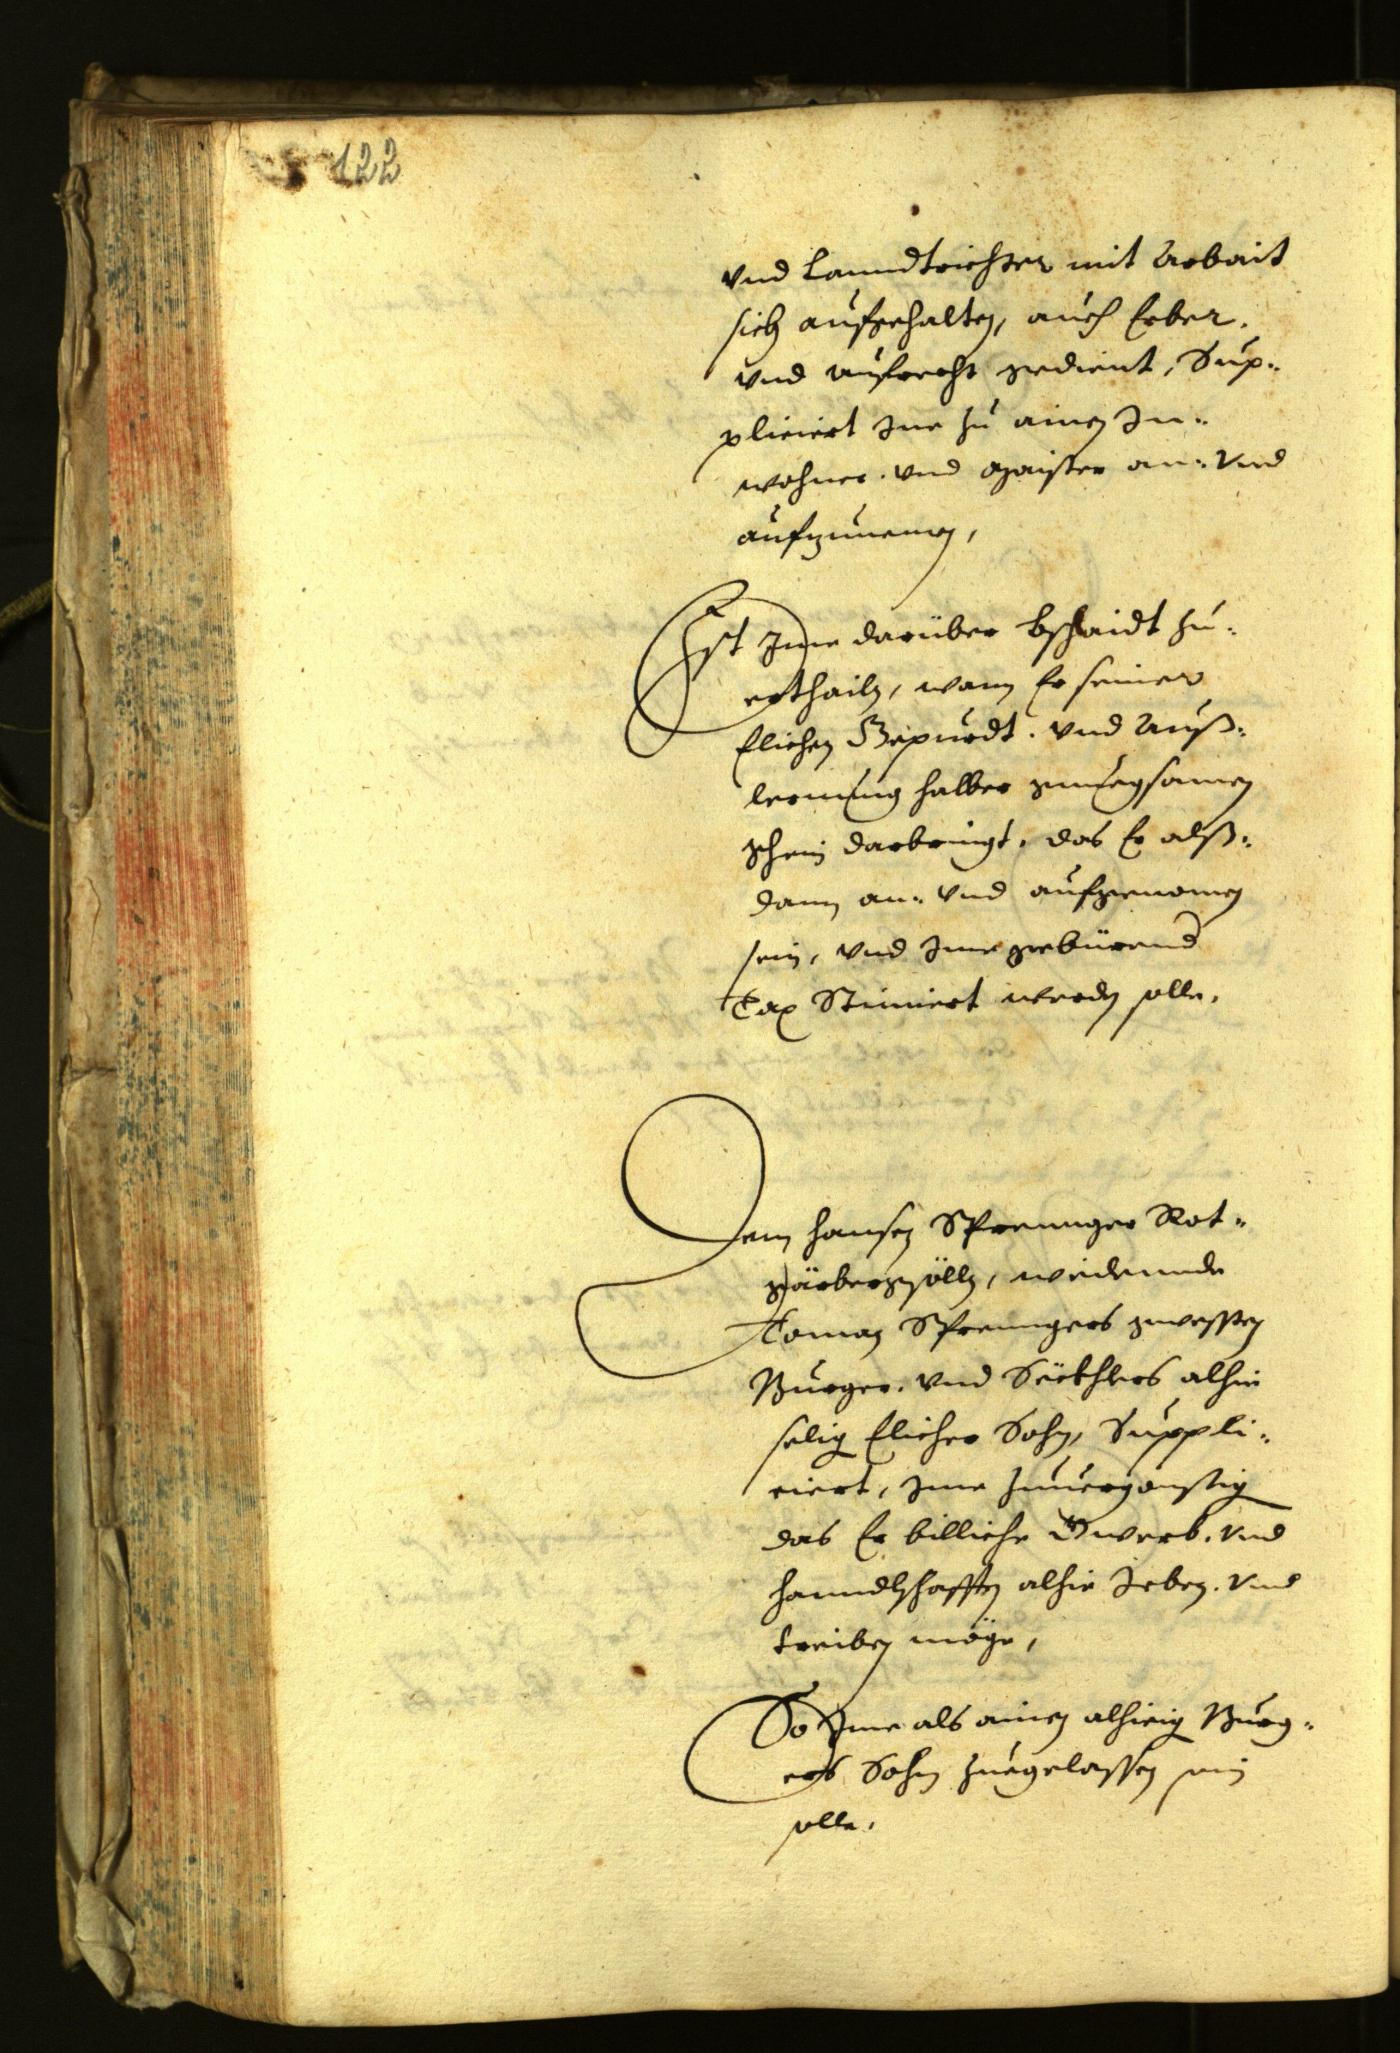 122
vnd Lanndtrichter mit Arbait
sich aufgehalten, auch Erber.
vnd aufrecht gedient, Sup¬
pliciert Ime zu ainen In¬
wohner. vnd Maister an: vnd
aufzunemen,
Ist Ime darüber bschaidt zu¬
erthailn, wann Er seiner
Elichen Gepurdt. vnd Auß¬
lernung halber gnuegsamen
schein darbringt, das Er alß¬
dann an: vnd aufgenomen
sein, vnd Ime gebürend
Tax Stimiert werden solle.
Dem Hansen Sprennger Rot¬
gärbergsölln, weilennde
Toman Sprenngers gwessten
Burger. vnd Säckhlers alhie
selig Elicher Sohn, Suppli¬
ciert, Ime zuuergonstig
das Er billiche Gwerb. vnd
Hanndlschafften alhie Ieben. vnd
treiben möge,
So Ime als ainen alhieig Burg¬
ers Sohn zuegelassen sein
solle.